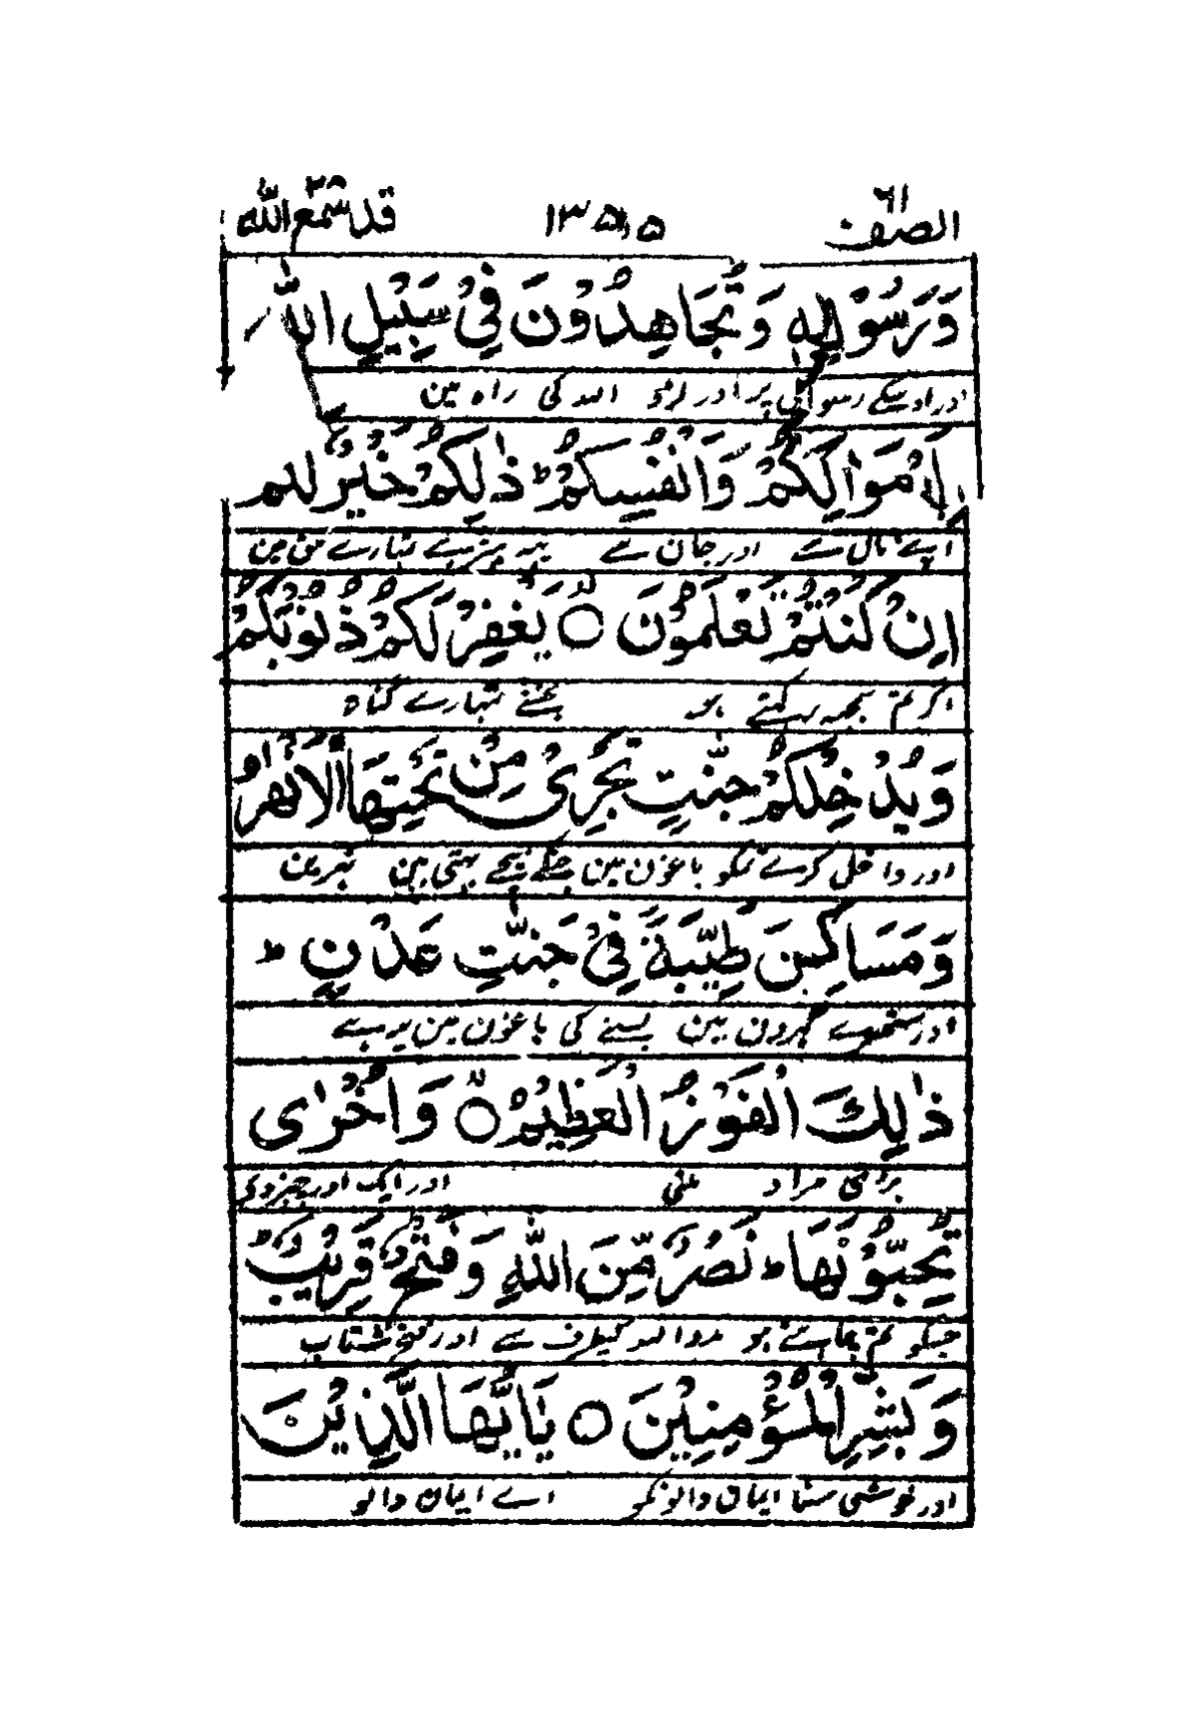 الصف ٦١ ١٣٥١٥ قد سمع الله ٢٨
وَرَسُوْلِهٖ وَتُجَاهِدُوْنَ فِيْ سَبِيْلِ اللّٰهِ
اور اوسکے رسول پر اور لڑو اللہ کی راہ مین
بِاَمْوَالِكُمْ وَاَنْفُسِكُمْ ؕ ذٰلِكُمْ خَيْرٌ لَّكُمْ
اپنے مال سے اور جان سے یہہ بہتر ہے تمہارے حق مین
اِنْ كُنْتُمْ تَعْلَمُوْنَ ۙ يَغْفِرْ لَكُمْ ذُنُوْبَكُمْ
اگر تم سمجہہ رکہتے ہو بخشے تمہارے گناہ
وَيُدْخِلْكُمْ جَنّٰتٍ تَجْرِيْ مِنْ تَحْتِهَا الْاَنْهٰرُ
اور داخل کرے تمکو باغون مین جنکے نیچے بہتی ہین نہرین
وَمَسَاكِنَ طَيِّبَةً فِيْ جَنّٰتِ عَدْنٍ ؕ
اور ستھرے گھرون مین بسنے کی باغون مین یہ ہے
ذٰلِكَ الْفَوْزُ الْعَظِيْمُ ۙ وَاُخْرٰى
بڑی مراد ملنی اور ایک اور چیز دے
تُحِبُّوْنَهَا ؕ نَصْرٌ مِّنَ اللّٰهِ وَفَتْحٌ قَرِيْبٌ ؕ
جسکو تم چاہتے ہو مدد اللہ کیطرف سے اور فتح شتاب
وَبَشِّرِ الْمُؤْمِنِيْنَ ○ يٰٓاَيُّهَا الَّذِيْنَ
اور خوشی سنا ایمان والونکو اے ایمان والو